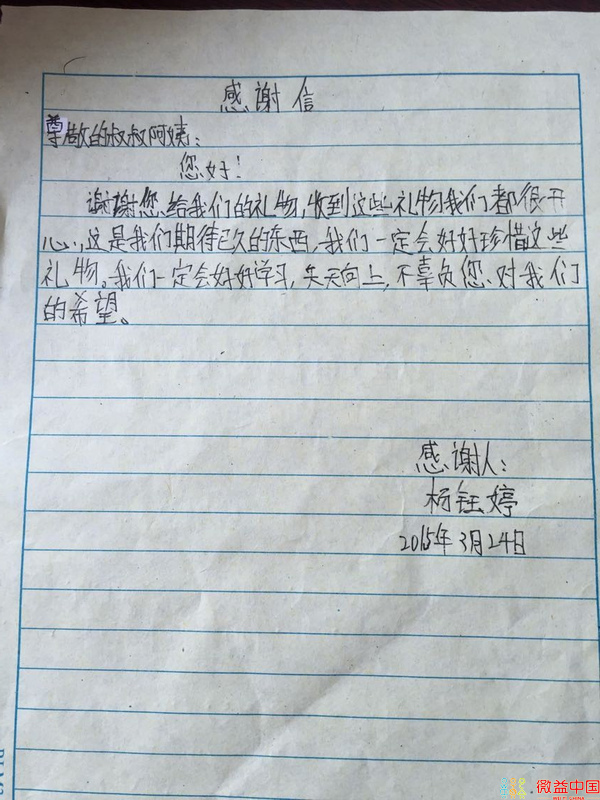 感谢信
尊敬的叔叔阿姨：
您好！
谢谢您给我们的礼物，收到这些礼物我们都很开
心，这是我们期待已久的东西，我们一定会好好珍惜这些
礼物。我们一定会好好学习，天天向上，不辜负您对我们
的希望。
感谢人：
杨钰婷
2015年3月24日
微益中国